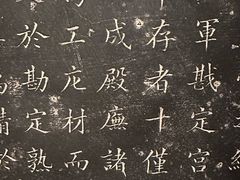 軍戡定宮
存者十僅
成殿廡諸
工庀材而
於勘定熟